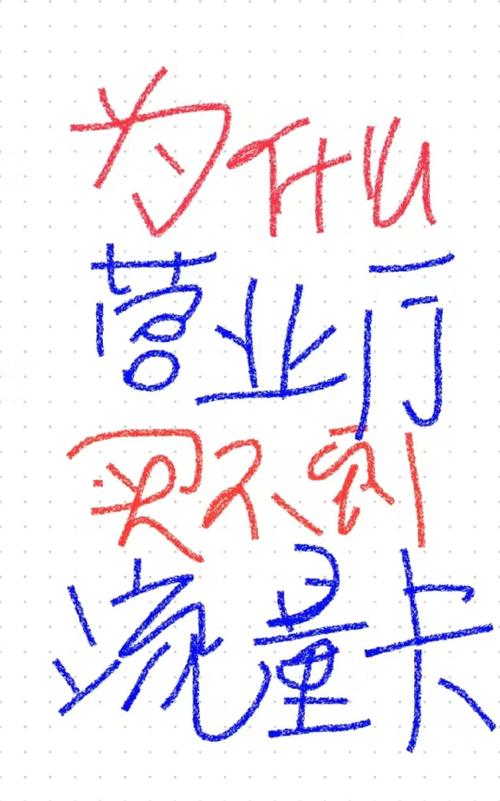 为什么
营业厅
买不到
流量卡